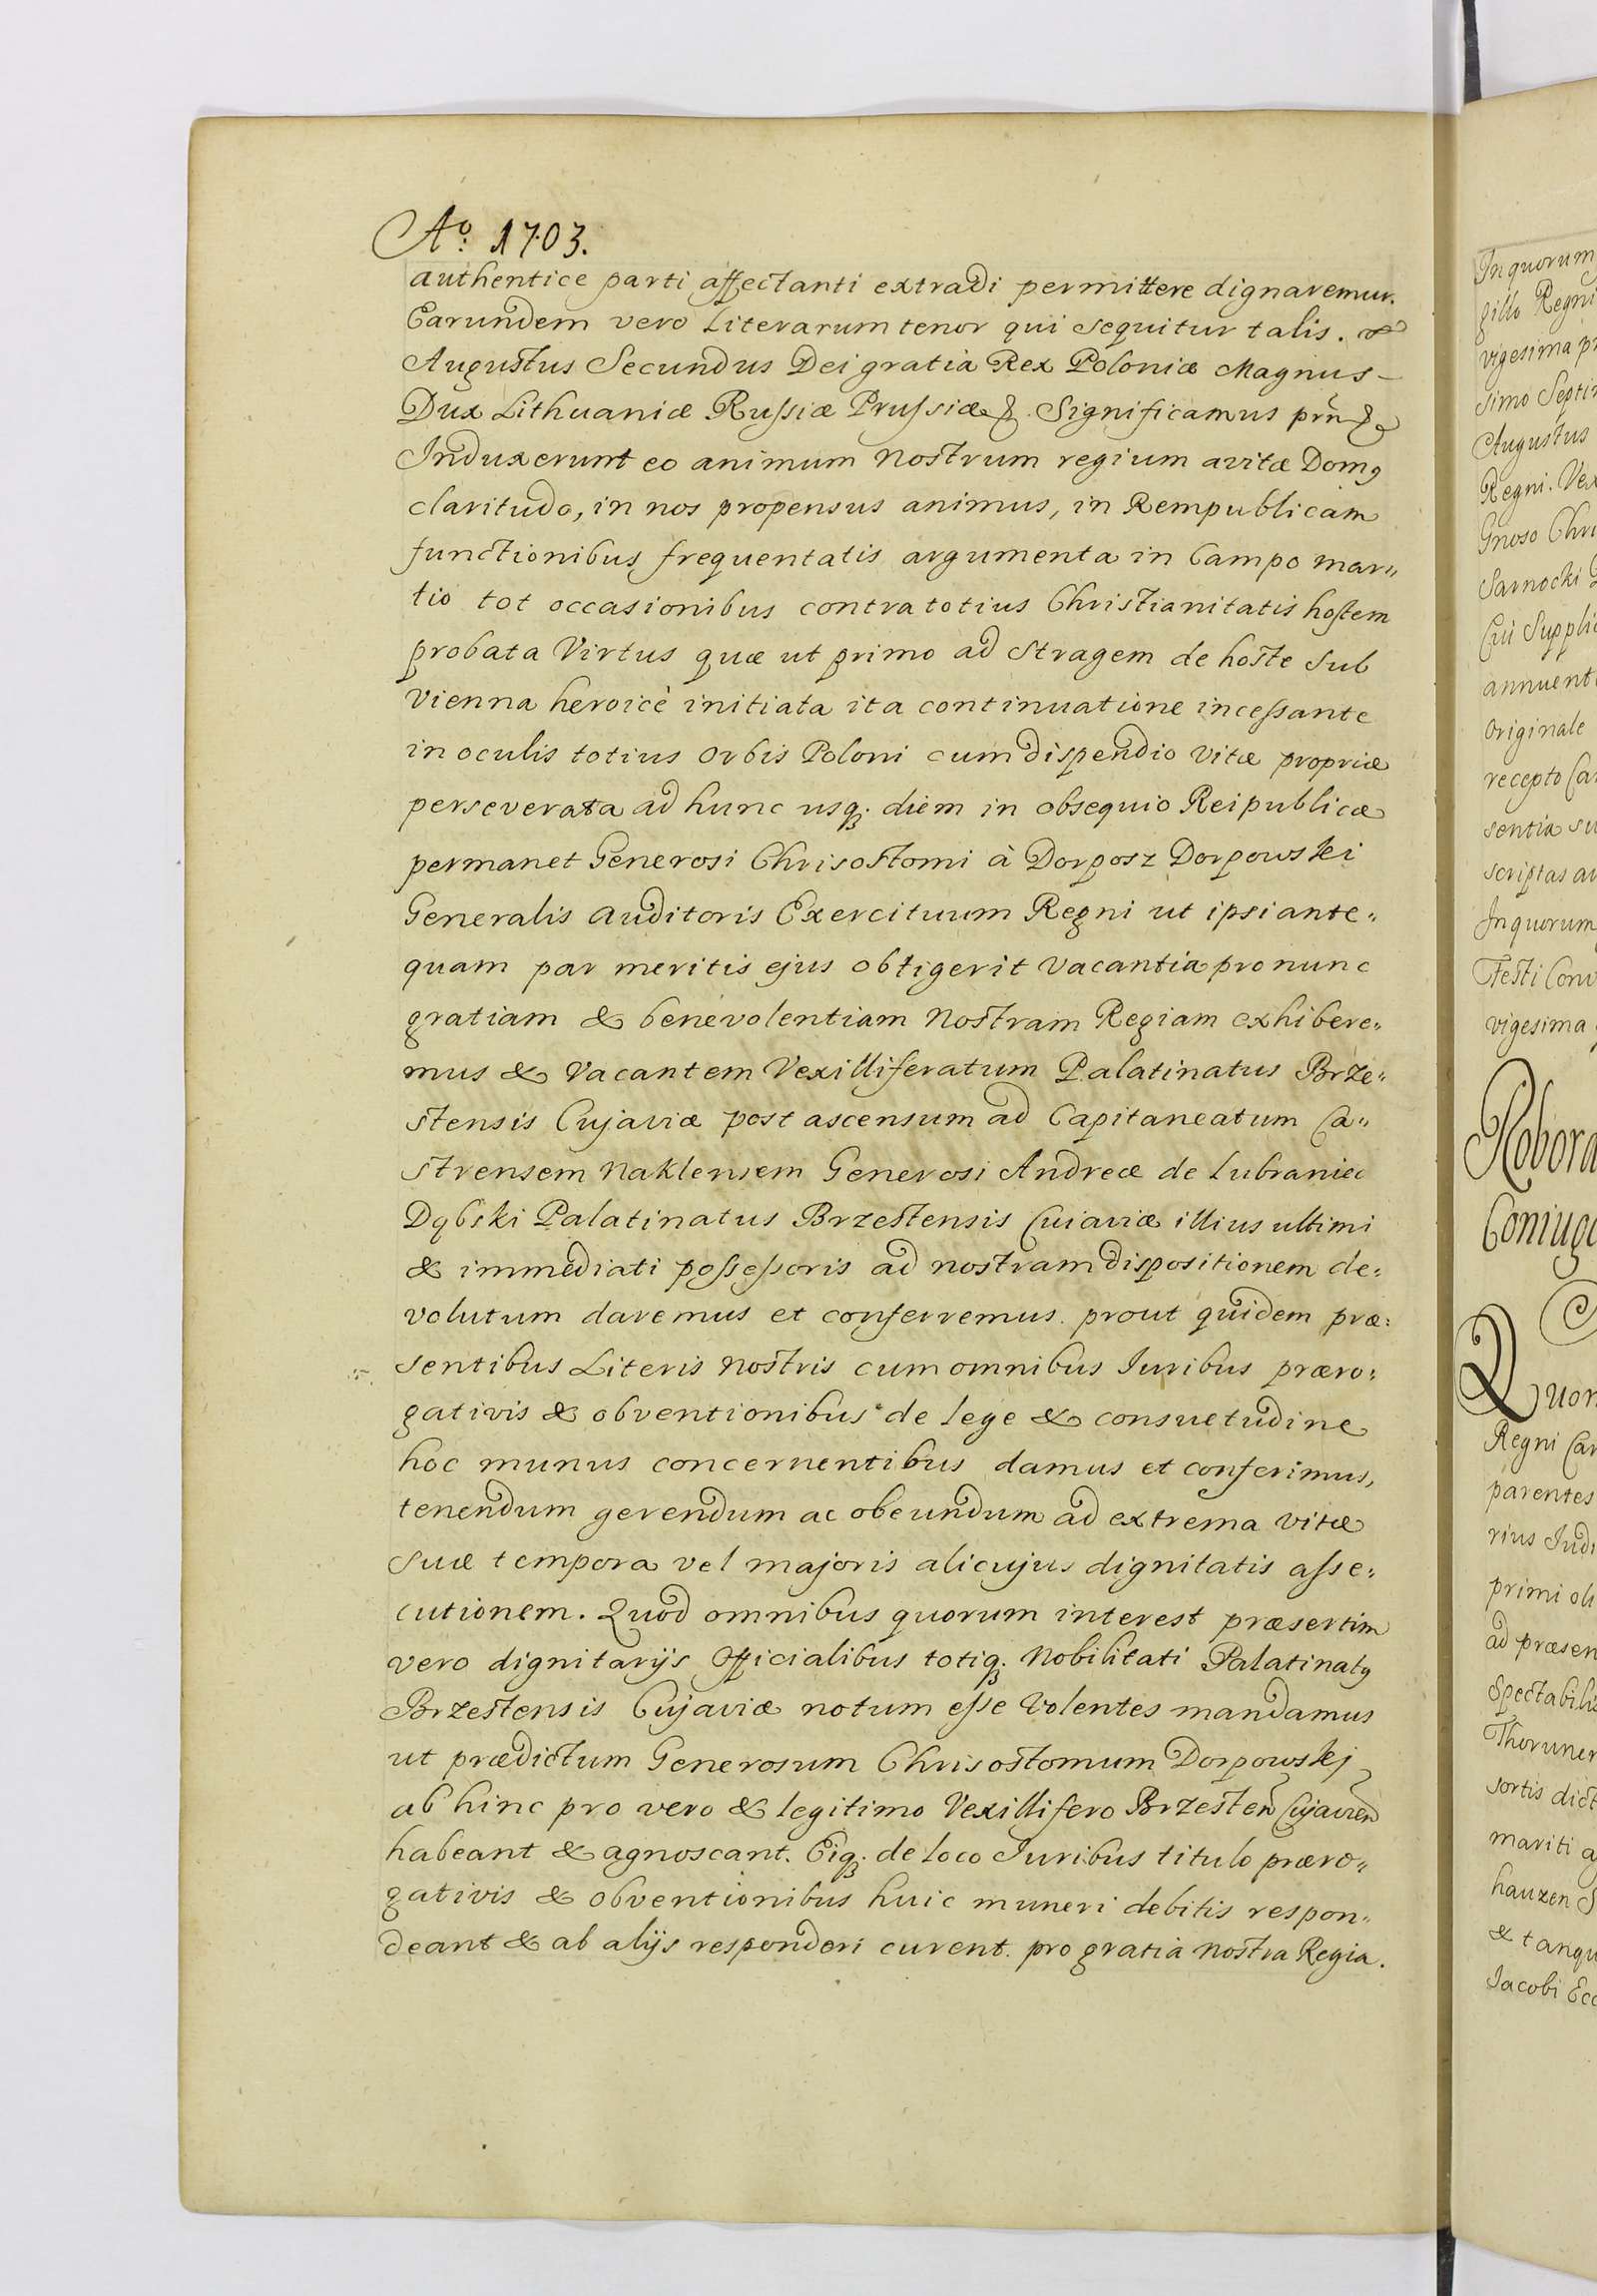 Aº: 1703.
authentice parti affectanti extradi permittere dignaremur.
Earundem vero Literarum tenor qui sequitur talis.
Augustus Secundus Dei gratia Rex Poloniæ Magnus
Dux Lithuaniæ Russiæ Prussiæ &. Significamus prñ &
Induxerunt eo animum nostrum regium avitæ Domꝰ
claritudo, in nos propensus animus, in Rempublicam
functionibus frequentatis argumenta in Campo mar„
tio tot occasionibus contra totius Christianitatis hostem
probata Virtus quæ ut primo ad stragem de hoste sub
Vienna heroicè initiata ita continuatione incessante
in oculis totius Orbis Poloni cum dispendio vitæ propriæ
perseverata ad hunc usqꝫ. diem in obsequio Reipublicæ
permanet Generosi Chrisostomi à Dorposz Dorpowski
Generalis Auditoris Exercituum Regni ut ipsi ante„
quam par meritis ejus obtigerit vacantia pro nunc
gratiam & benevolentiam Nostram Regiam exhibere„
mus & vacantem Vexilliferatum Palatinatus Brze„
stensis Cujaviæ post ascensum ad Capitaneatum Ca„
strensem Naklensem Generosi Andreæ de Lubraniec
Dąbski Palatinatus Brzestensis Cuiaviæ illius ultimi
& immediati possessoris ad nostram dispositionem de:
volutum daremus et conferremus. prout quidem præ:
sentibus Literis nostris cum omnibus Iuribus præro:
gativis & obventionibus de lege & consuetudine
hoc munus concernentibus damus et conferimus,
tenendum gerendum ac obeundum ad extrema vitæ
suæ tempora vel majoris alicujus dignitatis asse:
cutionem. Quod omnibus quorum interest præsertim
vero dignitarijs Officialibus totiqꝫ. Nobilitati Palatinatꝰ
Brzestensis Cujaviæ notum esse Volentes mandamus
ut prædictum Generosum Chrisostomum Dorpowskj
ab hinc pro vero & legitimo Vexillifero Brzesteñ Cujavieñ
habeant & agnoscant. Eiqꝫ. de loco Iuribus titulo præro„
gativis & obventionibus huic muneri debitis respon„
deant & ab alijs responderi curent. pro gratia nostra Regia.
In quorum
gillo Regni
vigesima pr
simo Septi
Augustus
Regni. Vex
Gnoso Chri
Sarnocki
Cui Suppli
annuent
originale
recepto Ca
sentia su
scriptas au
In quorum
Festi Conv
vigesima
Robora
Coniuga
Quon
Regni Ca
parentes
rius Iudi
primi oli
ad præsen
Spectabilis
Thorunen
sortis dict
mariti a
hauzen S
& tanqu
Iacobi Ecc